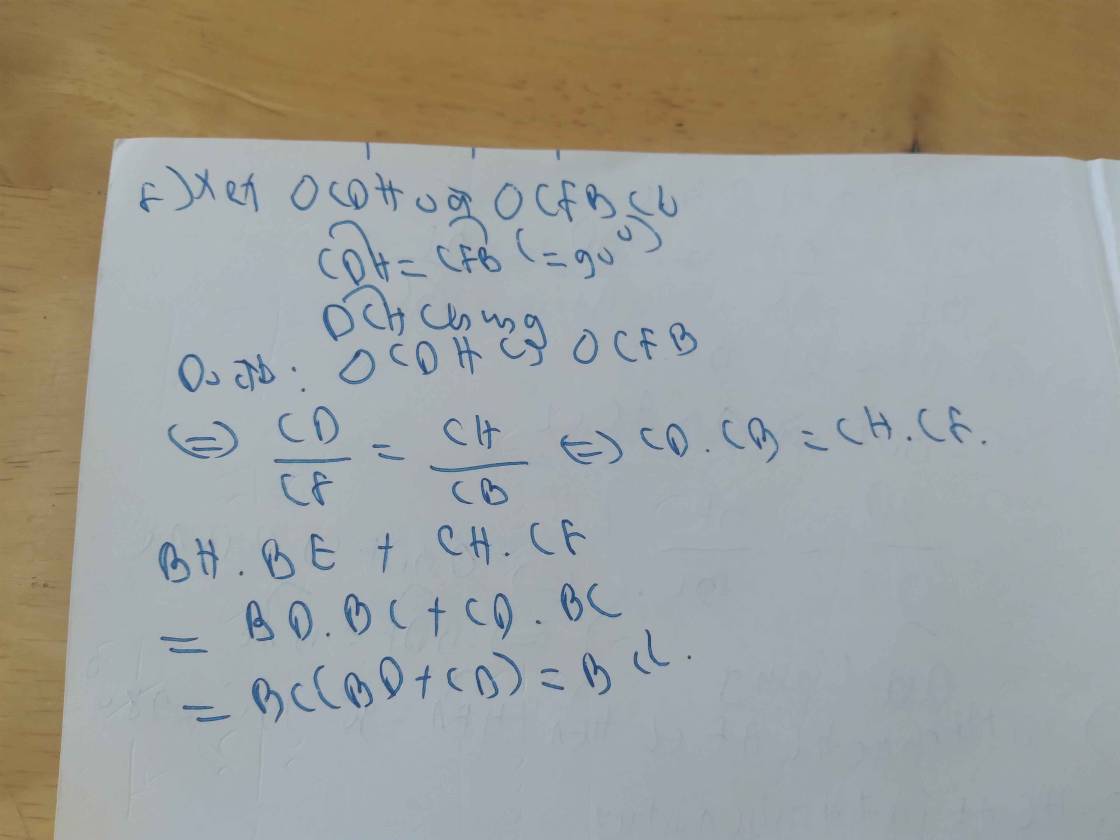 Xét ΔCDH và ΔCFB có
CDH = CFB (= 90⁰)
DCH chung
Do đó: ΔCDH ᔕ ΔCFB
(=) CD/CF = CH/CB (=) CD.CB = CH.CF.
BH.BE + CH.CF
= BD.BC + CD.BC
= BC(BD+CD) = BC².